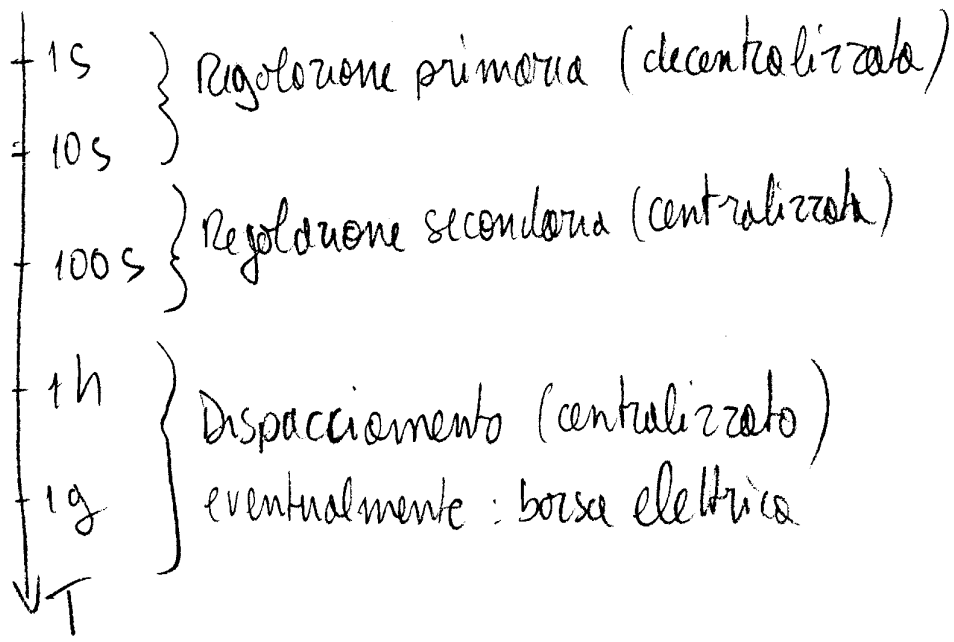 1s
Regolazione primaria (decentralizzata)
10s
Regolazione secondaria (centralizzata)
100s
1h
Dispacciamento (centralizzato)
1g
eventualmente: borsa elettrica
T